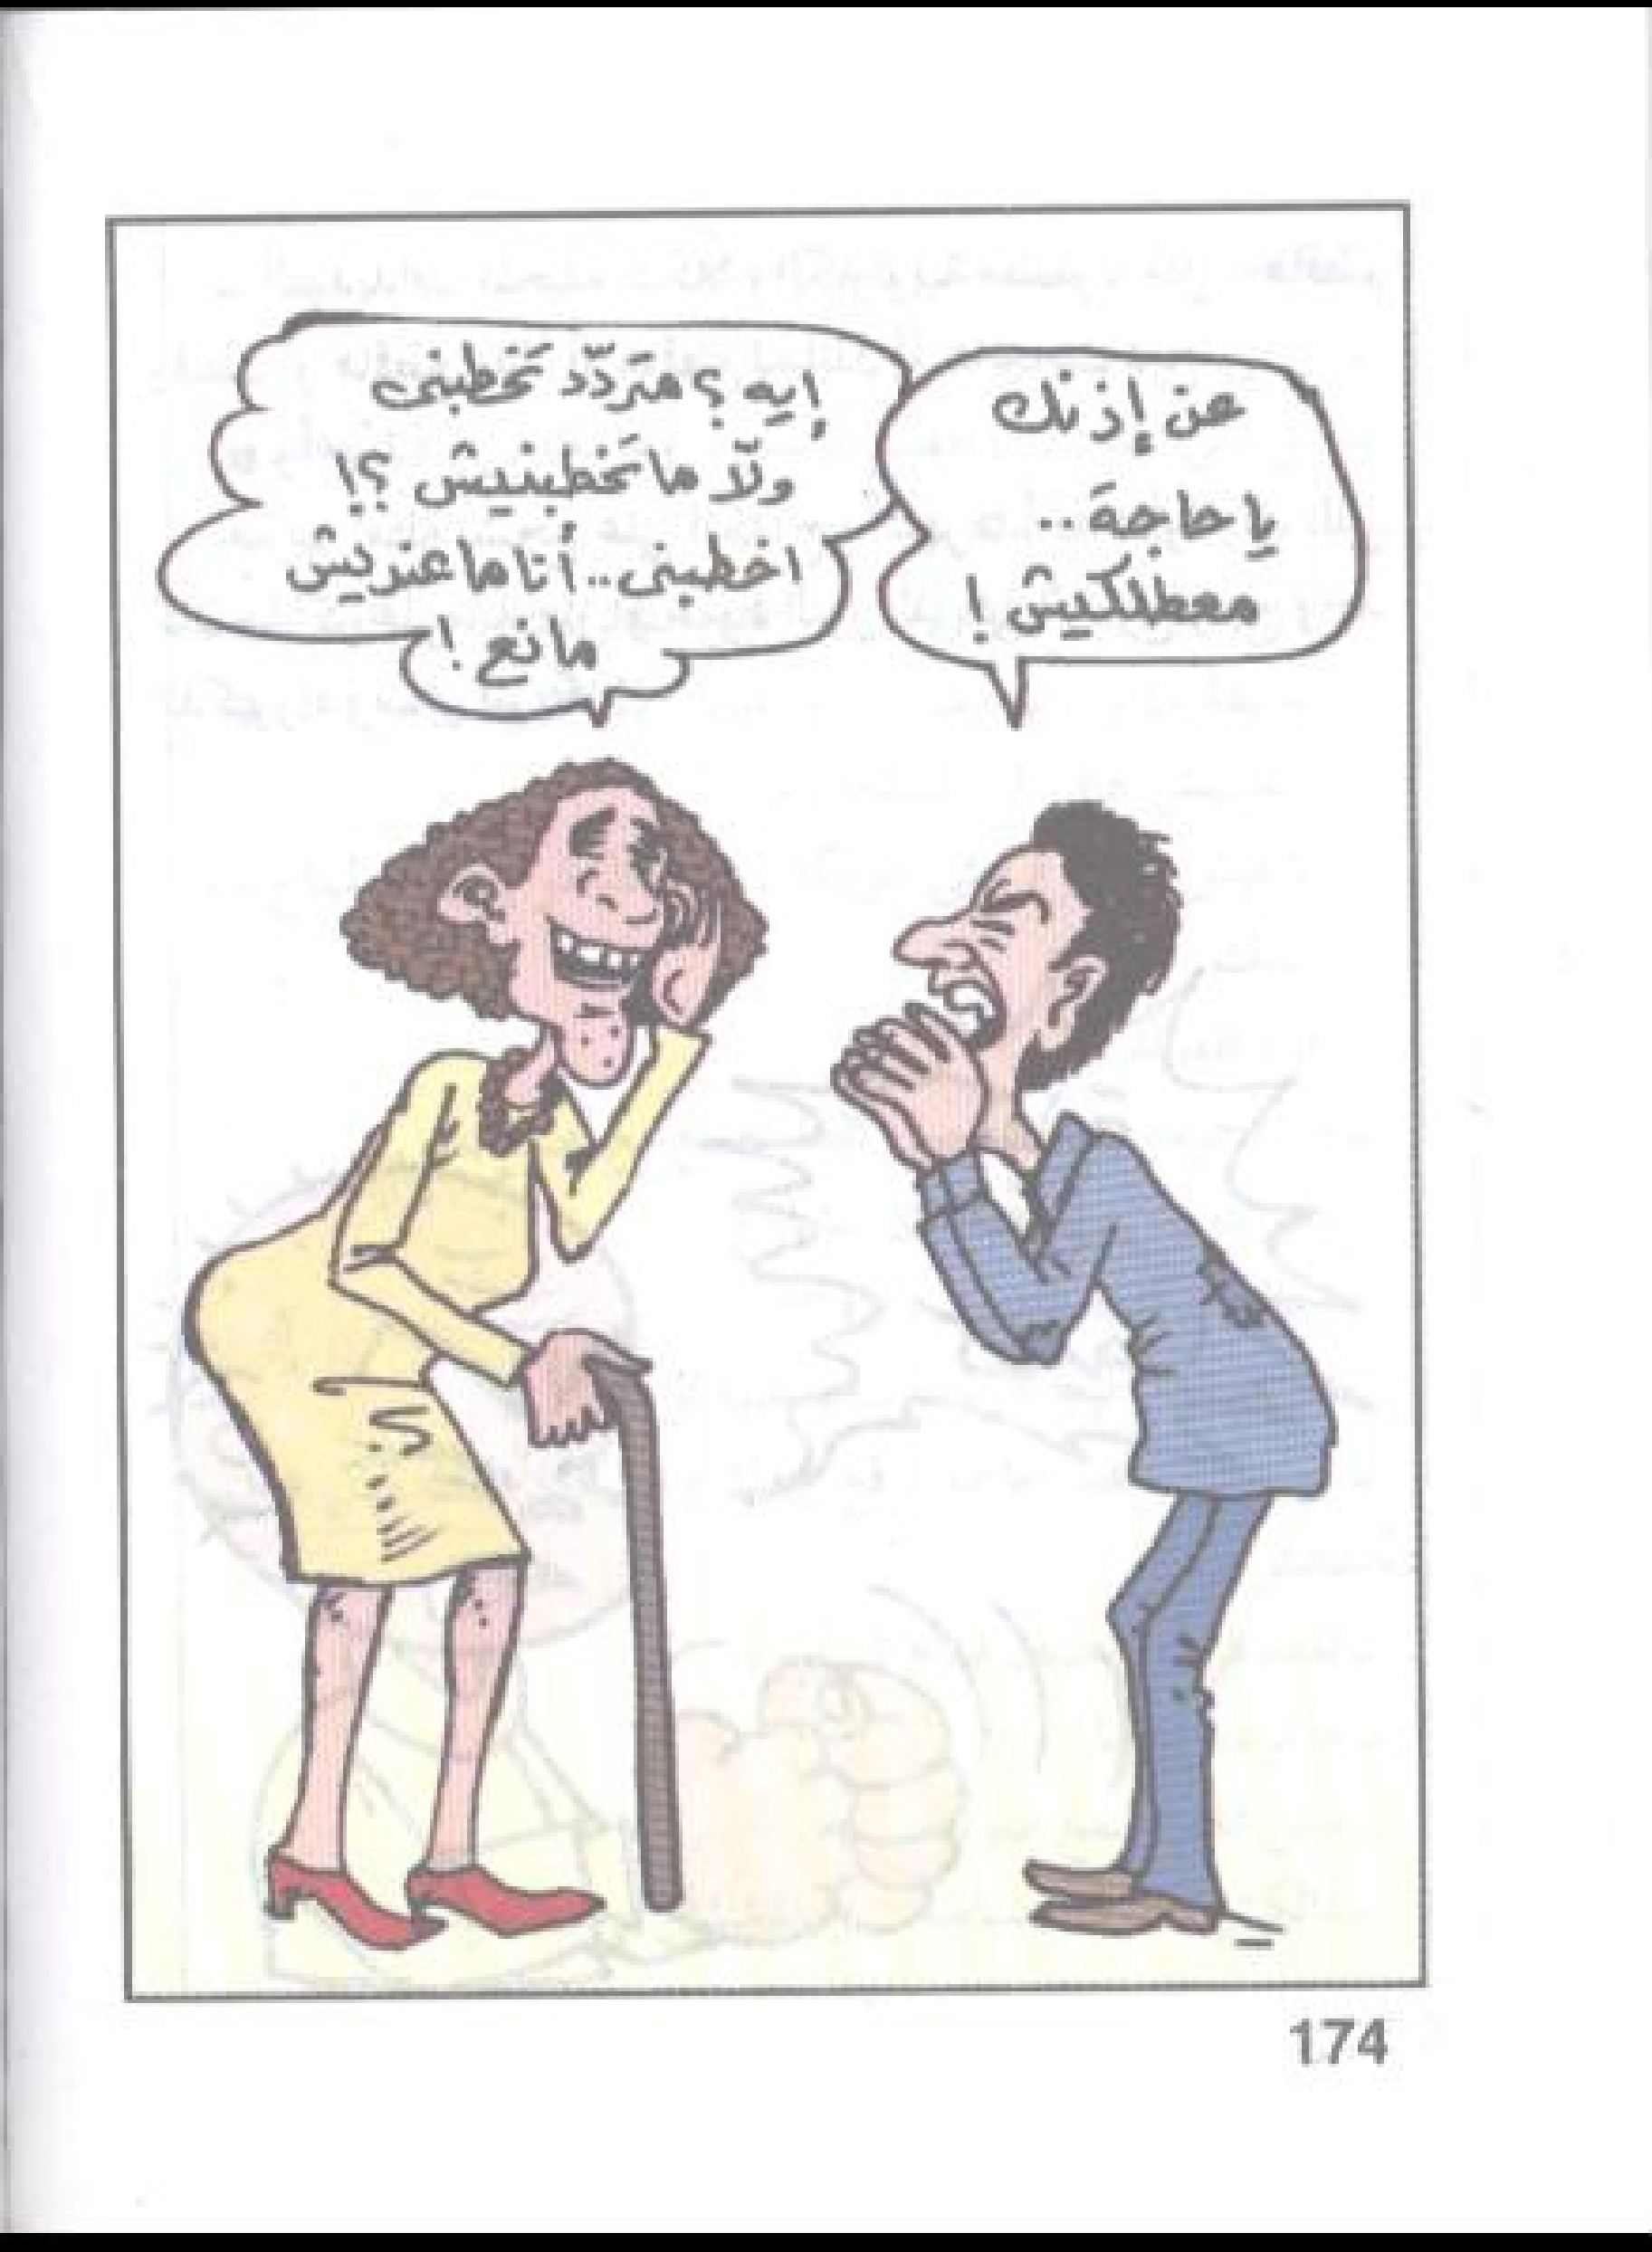 عن إذنك
يا حاجة..
معطلكيش!
إيه؟ متردّد تَخطبنى
ولّا ما تَخطبنيش؟!
اخطبنى.. أنا ما عنديش
مانع!
174